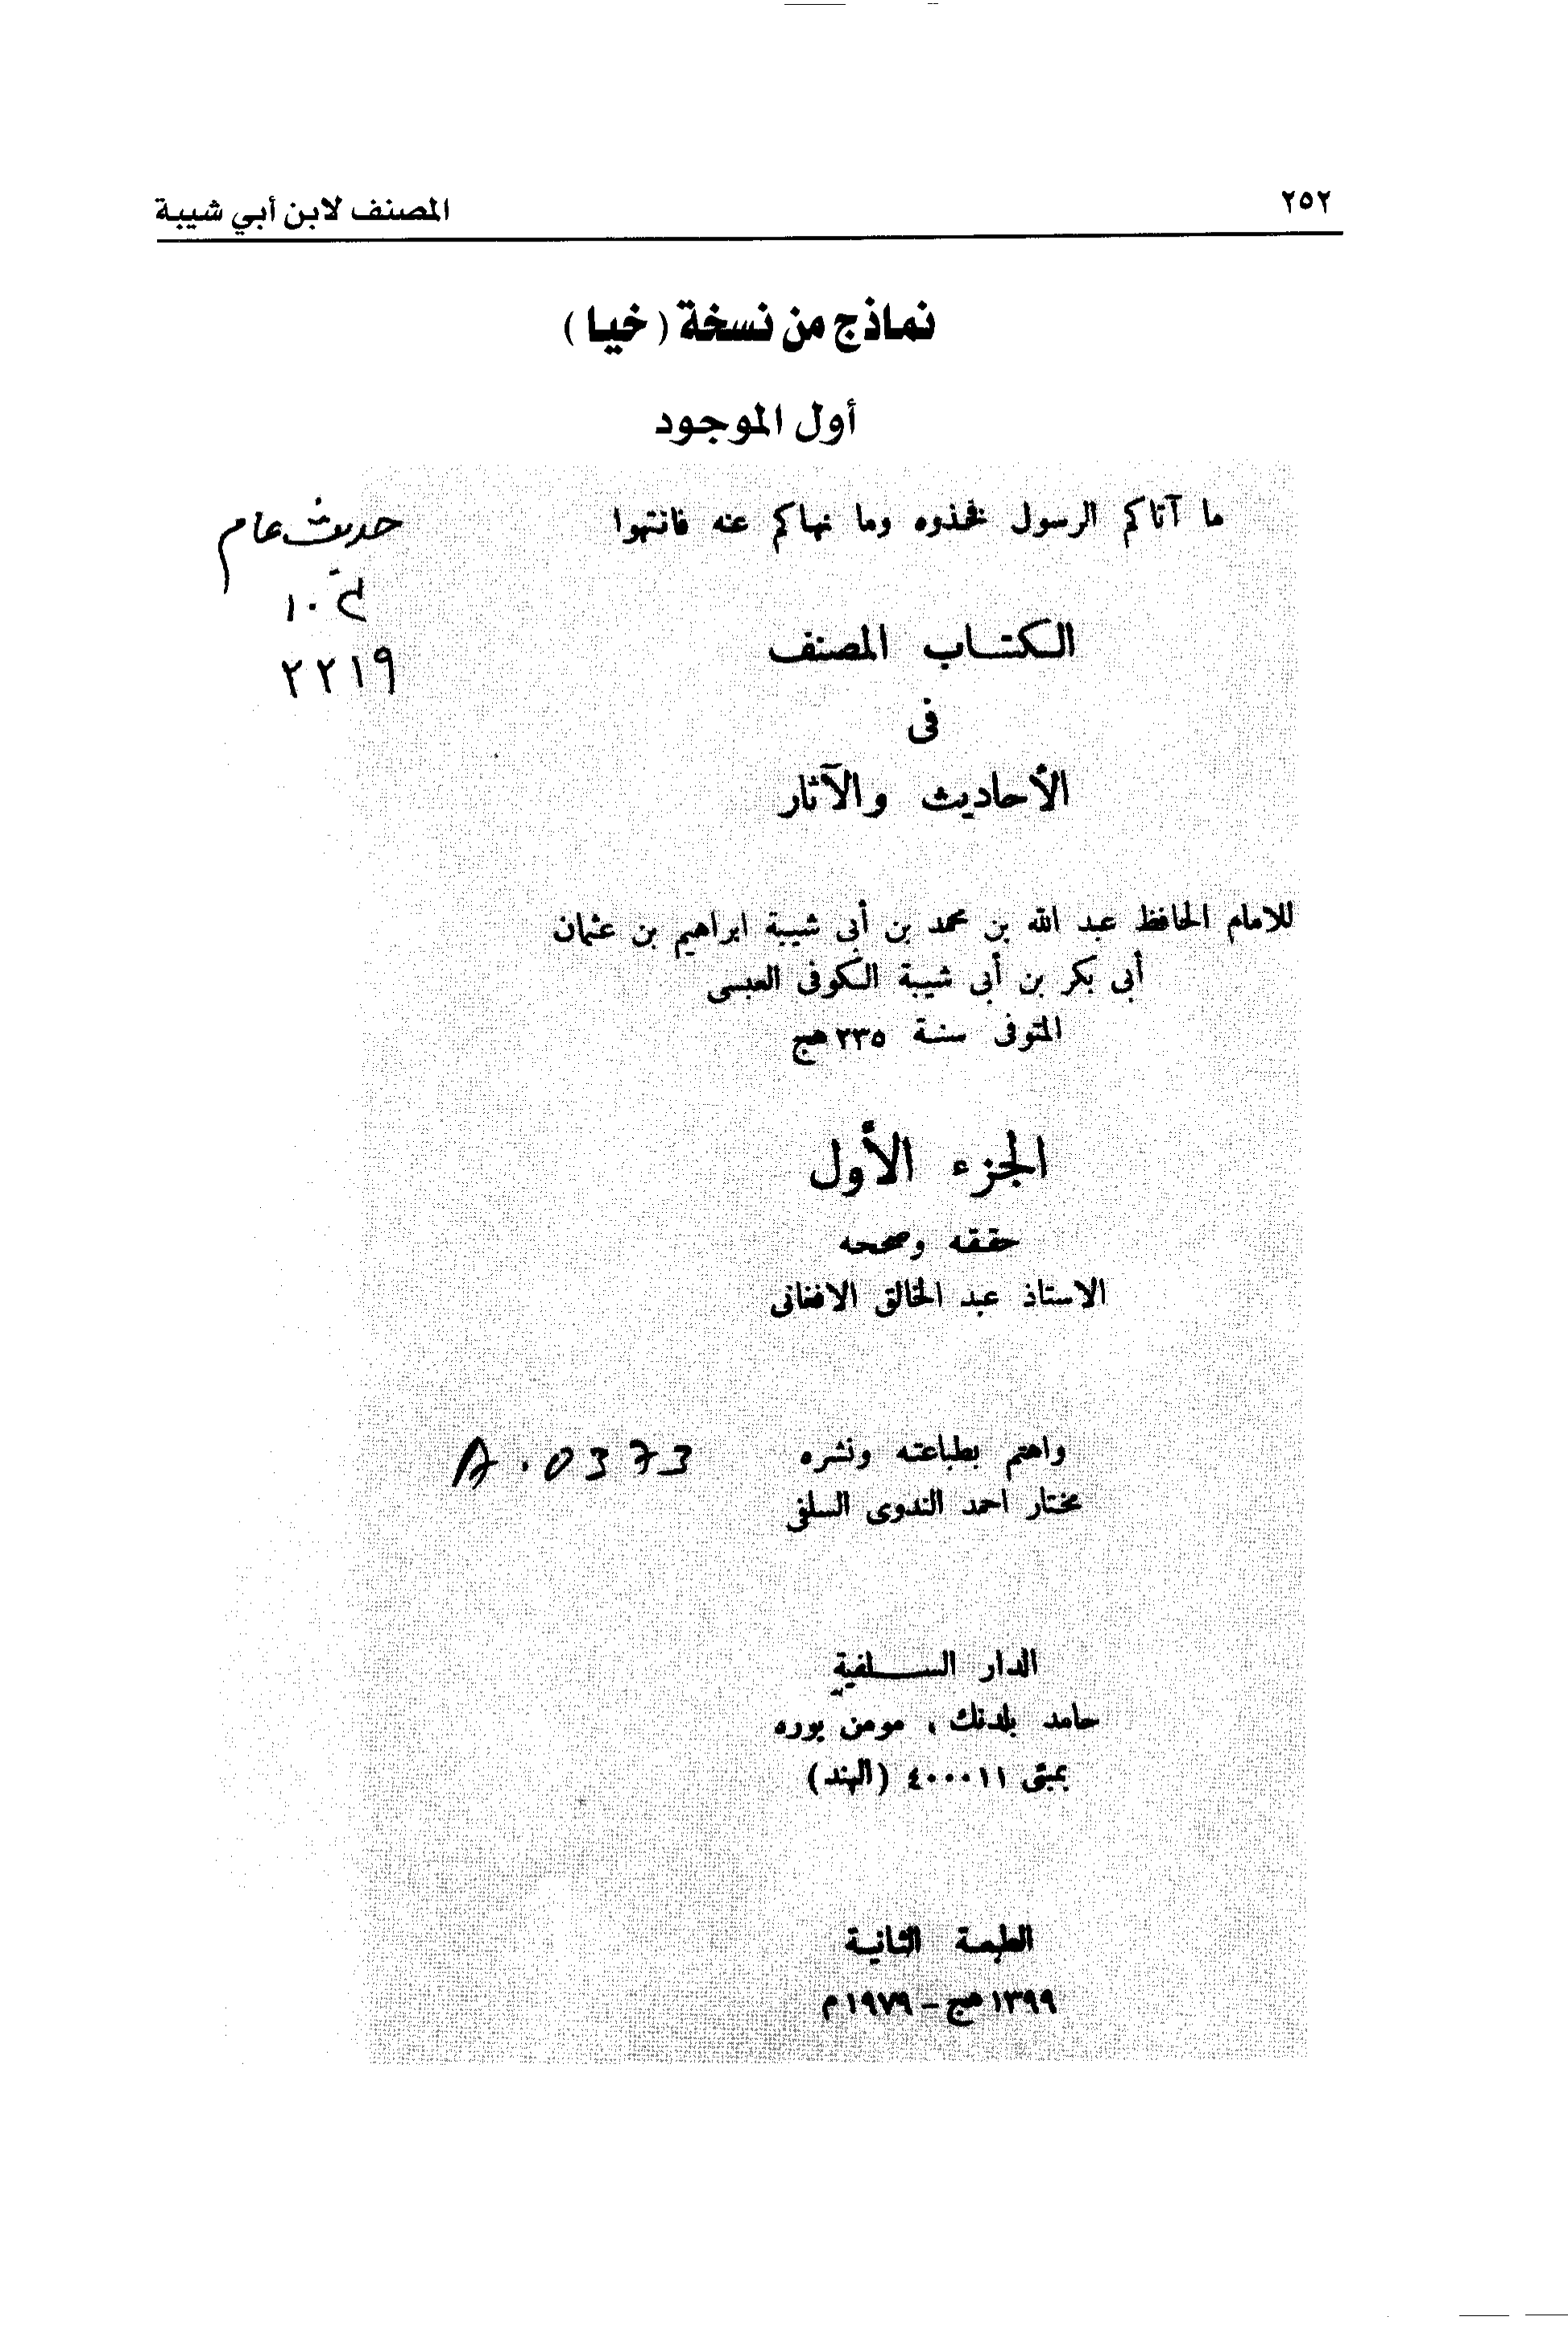 ٢٥٢
المصنف لابن أبي شيبة
نماذج من نسخة (خيا)
أول الموجود
ما آتاكم الرسول فخذوه وما نهاكم عنه فانتهوا
حديث عام
١٠
٢٢١٩
الكتاب المصنف
فى
الأحاديث والآثار
للامام الحافظ عبد الله بن محمد بن أبى شيبة ابراهيم بن عثمان
أبى بكر بن أبى شيبة الكوفى العبسى
المتوفى سنة ٢٣٥ هج
الجزء الأول
حققه وصححه
الاستاذ عبد الخالق الافغانى
واهتم بطباعته ونشره
A.0373
مختار احمد الندوى السلفى
الدار السلفية
حامد بلدنك ، مومن بوره
بمبئى ٤٠٠٠١١ (الهند)
الطبعة الثانية
١٣٩٩ هج – ١٩٧٩ م